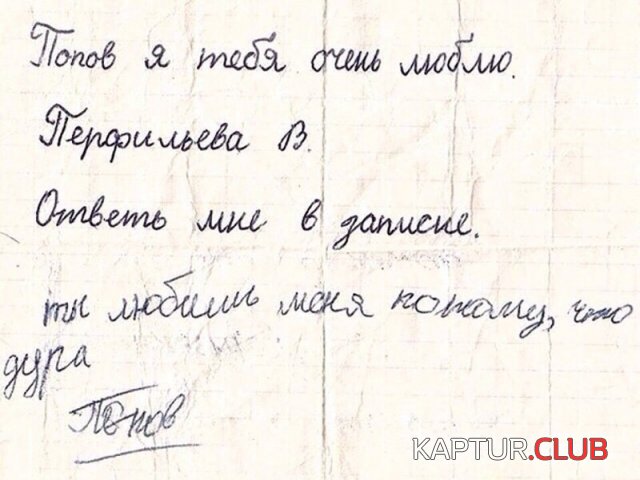 Попов я тебя очень люблю.
Перфильева В.
Ответь мне в записке.
ты любишь меня потому, что
дура
Попов
KAPTUR.CLUB